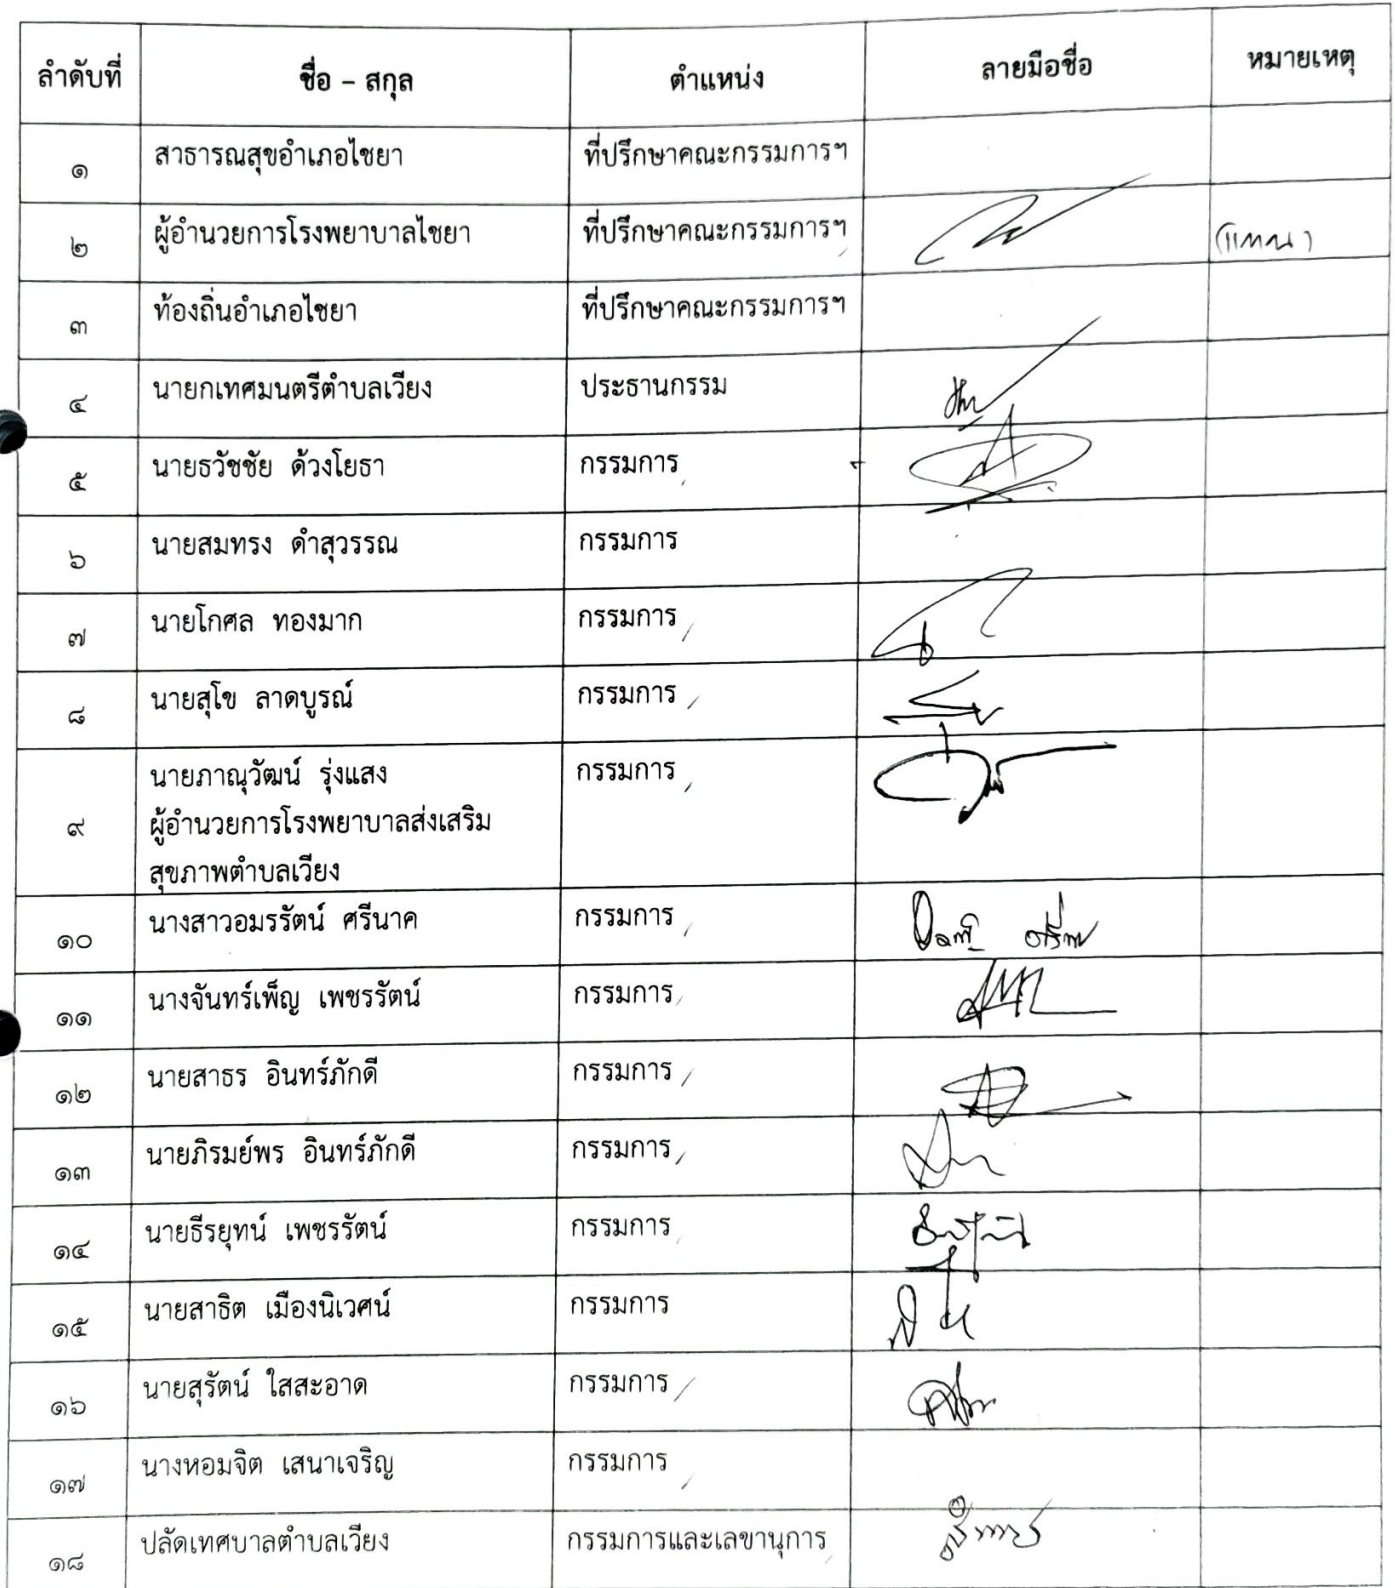 ลำดับที่ ชื่อ – สกุล ตำแหน่ง ลายมือชื่อ หมายเหตุ
๑ สาธารณสุขอำเภอไชยา ที่ปรึกษาคณะกรรมการฯ
๒ ผู้อำนวยการโรงพยาบาลไชยา ที่ปรึกษาคณะกรรมการฯ (แทน)
๓ ท้องถิ่นอำเภอไชยา ที่ปรึกษาคณะกรรมการฯ
๔ นายกเทศมนตรีตำบลเวียง ประธานกรรม
๕ นายธวัชชัย ด้วงโยธา กรรมการ
๖ นายสมทรง ดำสุวรรณ กรรมการ
๗ นายโกศล ทองมาก กรรมการ
๘ นายสุโข ลาดบูรณ์ กรรมการ
๙ นายภาณุวัฒน์ รุ่งแสง กรรมการ
ผู้อำนวยการโรงพยาบาลส่งเสริม
สุขภาพตำบลเวียง
๑๐ นางสาวอมรรัตน์ ศรีนาค กรรมการ
๑๑ นางจันทร์เพ็ญ เพชรรัตน์ กรรมการ
๑๒ นายสาธร อินทร์ภักดี กรรมการ
๑๓ นายภิรมย์พร อินทร์ภักดี กรรมการ
๑๔ นายธีรยุทน์ เพชรรัตน์ กรรมการ
๑๕ นายสาธิต เมืองนิเวศน์ กรรมการ
๑๖ นายสุรัตน์ ใสสะอาด กรรมการ
๑๗ นางหอมจิต เสนาเจริญ กรรมการ
๑๘ ปลัดเทศบาลตำบลเวียง กรรมการและเลขานุการ